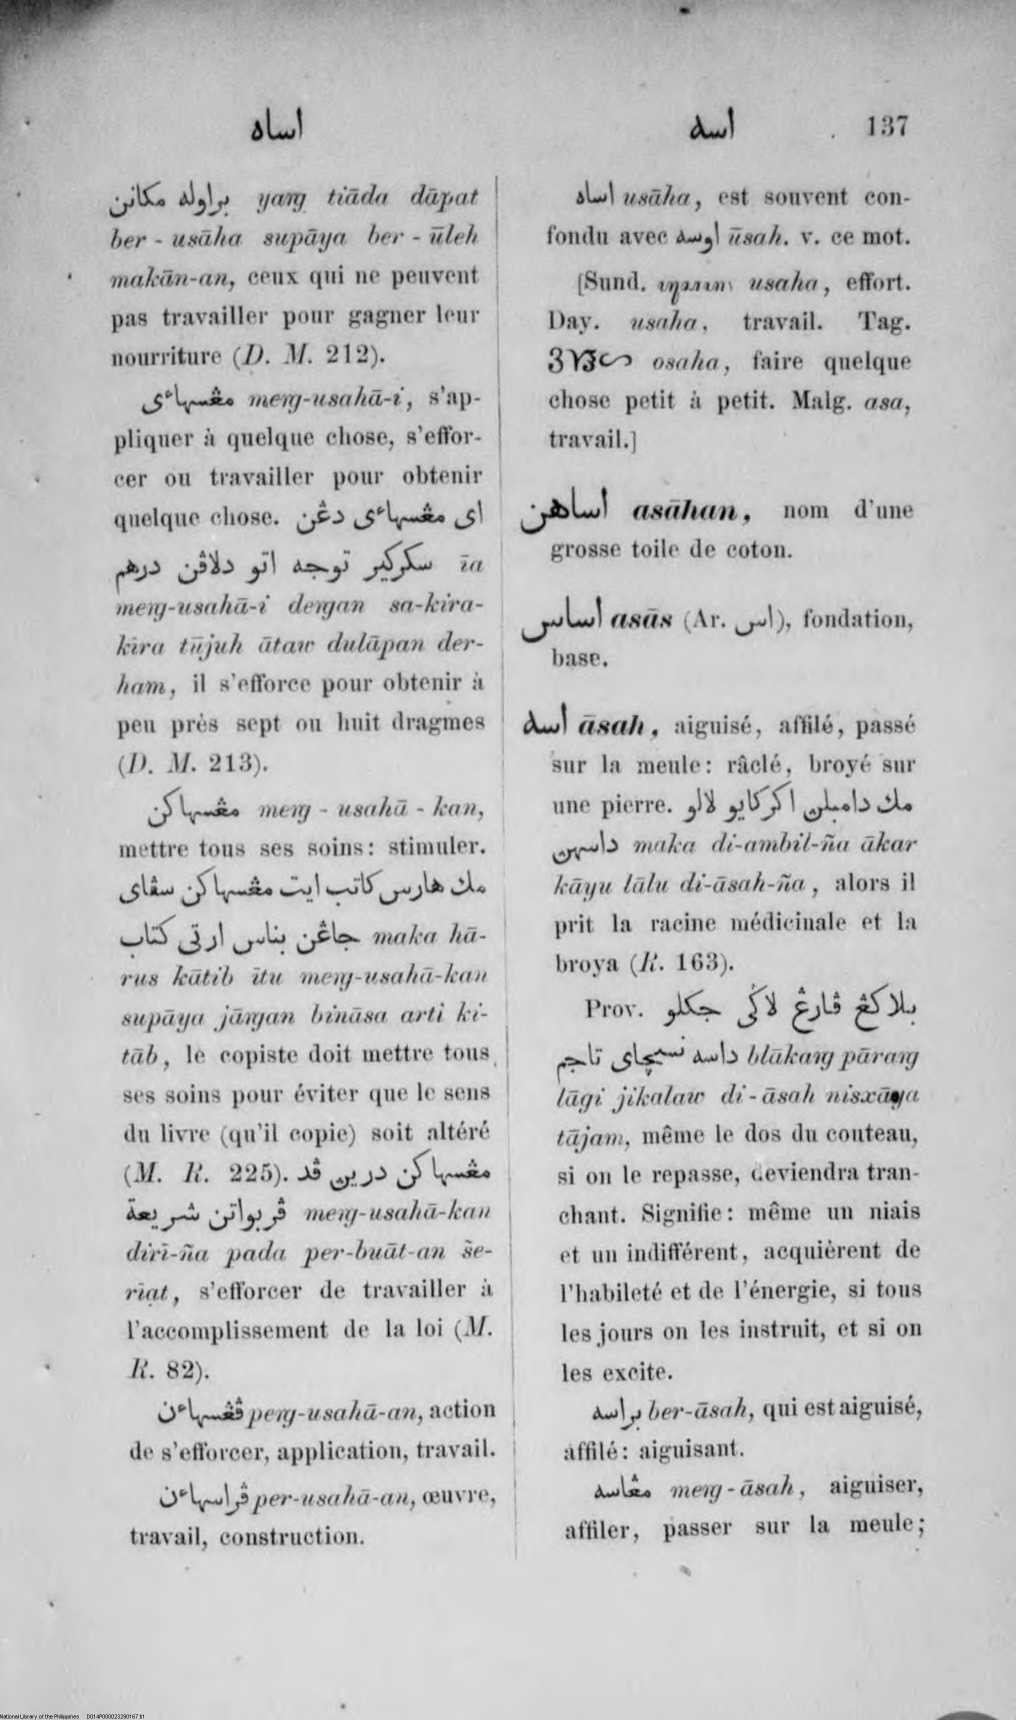 اساه
اسه 137
براوله مكانن yaŋ tiāda dāpat
ber - usāha supāya ber - ūleh
makān-an, ceux qui ne peuvent
pas travailler pour gagner leur
nourriture (D. M. 212).
مڠسهاءى meŋ-usahā-i, s'ap-
pliquer à quelque chose, s'effor-
cer ou travailler pour obtenir
quelque chose. اى مڠسهاءى دڠن
سكركير توجه اتو دلاڤن درهم īa
meŋ-usahā-i deŋan sa-kira-
kira tūjuh ātaw dulāpan der-
ham, il s'efforce pour obtenir à
peu près sept ou huit dragmes
(D. M. 213).
مڠسهاكن meŋ - usahā - kan,
mettre tous ses soins: stimuler.
مك هارس كاتب ايت مڠسهاكن سڤاى
جاڠن بناس ارتى كتاب maka hā-
rus kātib ītu meŋ-usahā-kan
supāya jāŋan bināsa arti ki-
tāb, le copiste doit mettre tous
ses soins pour éviter que le sens
du livre (qu'il copie) soit altéré
(M. R. 225). مڠسهاكن درين ڤد
ڤربواتن شريعة meŋ-usahā-kan
dirī-ña pada per-buāt-an še-
rīat, s'efforcer de travailler à
l'accomplissement de la loi (M.
R. 82).
ڤڠسهاءن peŋ-usahā-an, action
de s'efforcer, application, travail.
ڤراسهاءن per-usahā-an, œuvre,
travail, construction.
اساه usāha, est souvent con-
fondu avec اوسه ūsah. v. ce mot.
[Sund. usaha, effort.
Day. usaha, travail. Tag.
osaha, faire quelque
chose petit à petit. Malg. asa,
travail.]
اساهن asāhan, nom d'une
grosse toile de coton.
اساس asās (Ar. اس), fondation,
base.
اسه āsah, aiguisé, affilé, passé
sur la meule: râclé, broyé sur
une pierre. مك دامبلن اكركايو لالو
داسهن maka di-ambil-ña ākar
kāyu lālu di-āsah-ña, alors il
prit la racine médicinale et la
broya (R. 163).
Prov. بلاكڠ ڤارڠ لاڬى جكلو
داسه نسچاى تاجم blākaŋ pāraŋ
lāgi jikalaw di-āsah nisxāya
tājam, même le dos du couteau,
si on le repasse, deviendra tran-
chant. Signifie: même un niais
et un indifférent, acquièrent de
l'habileté et de l'énergie, si tous
les jours on les instruit, et si on
les excite.
براسه ber-āsah, qui est aiguisé,
affilé: aiguisant.
مڠاسه meŋ-āsah, aiguiser,
affiler, passer sur la meule;
National Library of the Philippines